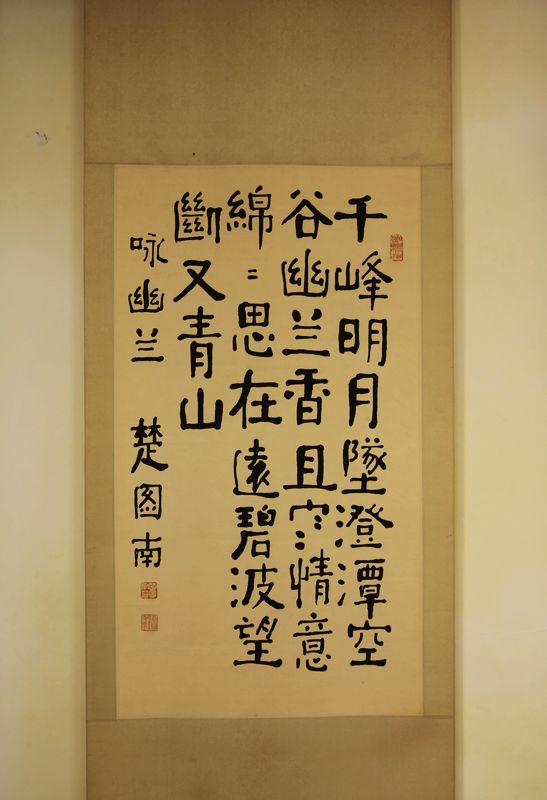 千峰明月墜澄潭空
谷幽兰香且寒情意
綿〻思在遠碧波望
斷又青山
咏幽兰 楚图南